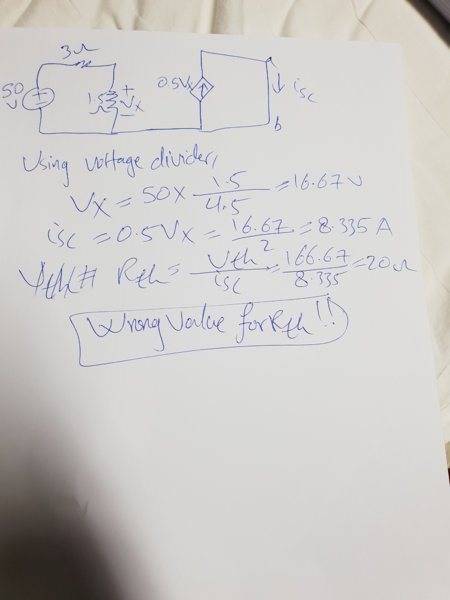 3Ω
50
V
1.5Ω
+
Vx
-
0.5Vx
isc
b
Using voltage divider,
Vx = 50 x 1.5/4.5 = 16.67 V
isc = 0.5Vx = 16.67/2 = 8.335 A
Rth = Vth/isc = 166.67/8.335 = 20Ω
Wrong Value for Rth!!